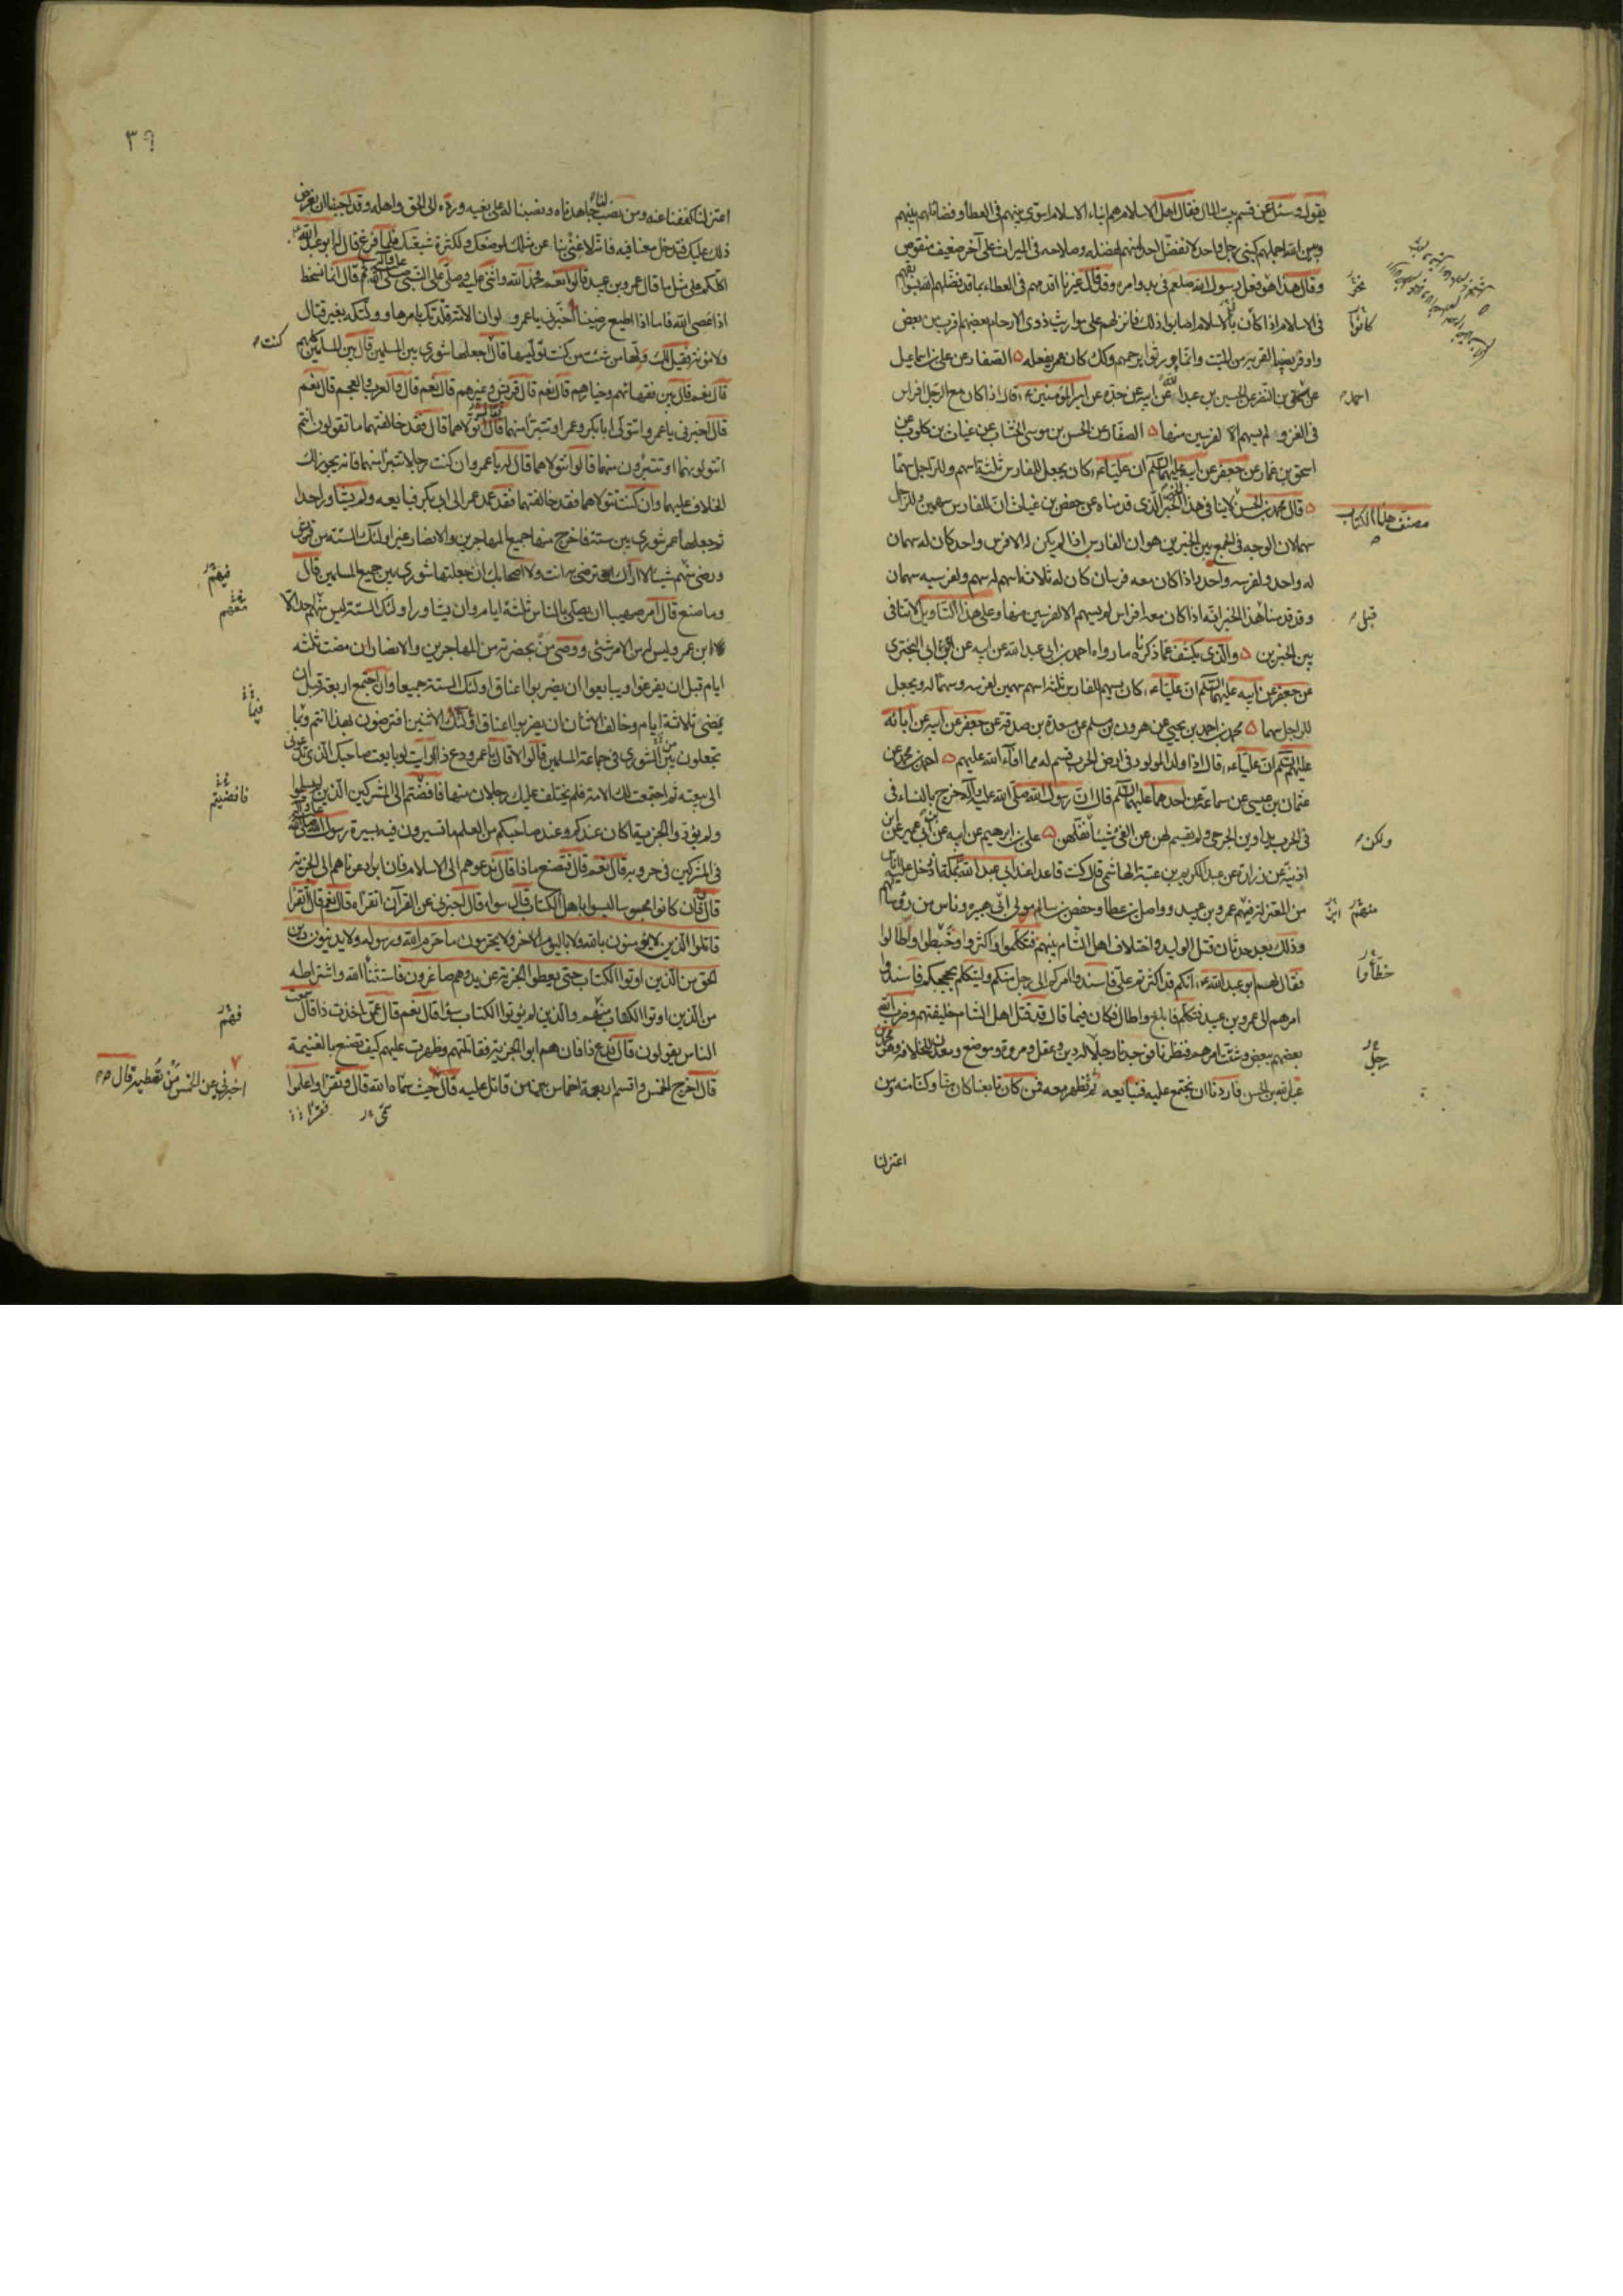 يقول وسئل عن قسم بيت المال فقال اهل الاسلام هم ابناء الاسلام اسوى بينهم فى العطاء وفضائلهم بينهم
وبين الله اجعلهم كبنى رجل واحد لا نفضل احدا منهم لفضله وصلاحه فى الميراث على آخر ضعيف منقوص
وقال هذا هو فعل رسول الله صلعم فى بدو امره وقد قال غيرنا اقدمهم فى العطاء بما قد فضلهم الله بسوابقهم
فى الاسلام اذا كان بالاسلام اصابوا ذلك فانزلهم على مواريث ذوى الارحام بعضهم اقرب من بعض
واوفر نصيبا لقربه من الميت وانما ورثوا برحمهم وكذلك كان عمر يفعله ۵ الصفار عن على بن اسماعيل
عن اسحق بن النضر عن الحسين بن عبد الله عن ابيه عن جده عن امير المؤمنين ع قال اذا كان مع الرجل افراس
فى الغزو لم يسهم الا لفرسين منها ۵ الصفار عن الحسن بن موسى الخشاب عن غياث بن كلوب عن
اسحق بن عمار عن جعفر عن ابيه عليهما السلم ان عليا ع كان يجعل للفارس ثلثة اسهم وللراجل سهما
۵ قال محمد بن الحسن لا ينافى هذا الخبر الذى قدمناه عن حفص بن غياث ان للفارس سهمين وللراجل
سهما لان الوجه فى الجمع بين الخبرين هو ان الفارس اذا لم يكن له الا فرس واحد كان له سهمان
له واحد ولفرسه واحد واذا كان معه فرسان كان له ثلاثة اسهم له سهم ولفرسيه سهمان
وقد قدمنا هذا الخبر انه اذا كان معه افراس لم يسهم الا لفرسين منها وعلى هذا التاويل لا تنافى
بين الخبرين ۵ والذى يكشف عما ذكرناه ما رواه احمد بن ابى عبد الله عن ابيه عن ابى البخترى
عن جعفر عن ابيه عليهما السلم ان عليا ع كان يسهم للفارس ثلثة اسهم سهمين لفرسه وسهما له ويجعل
للراجل سهما ۵ محمد بن احمد بن يحيى عن هرون بن مسلم عن مسعدة بن صدقة عن جعفر عن ابيه عن ابائه
عليهم السلم ان عليا ع قال اذا ولد المولود فى ارض الحرب قسم له مما افاء الله عليهم ۵ احمد بن محمد عن
عثمان بن عيسى عن سماعة عن احدهما عليهما السلم قال ان رسول الله صلى الله عليه وآله خرج بالنساء فى
فى الحرب يداوين الجرحى ولم يقسم لهن من الفئ شيئا نفلهن ۵ على بن ابرهيم عن ابيه عن ابن ابى عمير عن ابن
اذينة عن زرارة عن عبد الكريم بن عتبة الهاشمى قال كنت قاعدا عند ابى عبد الله ع بمكة اذ دخل عليه اناس
من المعتزلة فيهم عمرو بن عبيد وواصل بن عطا وحفص بن سالم مولى ابى هبيرة وناس من رؤسائهم
وذلك بعد حدثان قتل الوليد واختلاف اهل الشام بينهم فتكلموا فاكثروا وخبطوا واطالوا
فقال لهم ابو عبد الله ع انكم قد اكثرتم على فاسندوا امركم الى رجل منكم وليتكلم بحججكم فاسندوا
امرهم الى عمرو بن عبيد فتكلم فابلغ واطال فكان فيما قال قد قتل اهل الشام خليفتهم وضرب الله
بعضهم ببعض وشتت امرهم فنظرنا فوجدنا رجلا له دين وعقل ومروة وموضع ومعدن للخلافة وهو محمد بن
عبد الله بن الحسن فاردنا ان نجتمع عليه فنبايعه ثم نظهر معه فمن كان تابعنا كان منا وكنا منه ومن
اعتزلنا
مصنف هذا الكتاب
كانوا
احمد
قبل
ولكن
منهم
خطأوا
رجل
٣٩
اعتزلنا كففنا عنه ومن نصب لنا جاهدناه ونصبنا له على بغيه ورده الى الحق واهله وقد احببنا ان نعرض
ذلك عليك فتدخل معنا فيه فانه لا غنى بنا عن مثلك لموضعك ولكثرة شيعتك فلما فرغ قال ابو عبد الله ع
اكلكم على مثل ما قال عمرو بن عبيد قالوا نعم فحمد الله واثنى عليه وصلى على النبى صلى الله عليه وآله ثم قال انما نسخط
اذا عصى الله فاما اذا اطيع رضينا اخبرنى يا عمرو لو ان الامة قلدتك امرها وولتك بغير قتال
ولا مؤنة فقيل لك ولها من شئت من كنت توليها قال اجعلها شورى بين المسلمين قال بين المسلمين كلهم
قال نعم قال بين فقهائهم وخيارهم قال نعم قال قريش وغيرهم قال نعم قال والعرب والعجم قال نعم
قال اخبرنى يا عمرو اتتولى ابا بكر وعمر او تتبرأ منهما قال اتولاهما قال فقد خالفتهما ما تقولون انتم
اتتولونهما او تتبرؤن منهما قالوا نتولاهما قال له يا عمرو ان كنت رجلا تتبرأ منهما فانه يجوز لك
الخلاف عليهما وان كنت تتولاهما فقد خالفتهما فقد عمد عمر الى ابى بكر فبايعه ولم يشاور احدا
ثم جعلها عمر شورى بين ستة فاخرج منها جميع المهاجرين والانصار غير اولئك الستة من قريش
ورضى منهم شيئا لا اراك ترضى به انت ولا اصحابك ان جعلتها شورى بين جميع المسلمين قال
وما صنع قال امر صهيبا ان يصلى بالناس ثلثة ايام وان يشاور اولئك الستة ليس منهم احد الا
ابن عمر وليس له من الامر شئى ووصى من بحضرته من المهاجرين والانصار ان مضت ثلثة
ايام قبل ان يفرغوا ويبايعوا ان يضربوا اعناق اولئك الستة جميعا وان اجتمع اربعة قبل ان
يمضى ثلاثة ايام وخالف الاثنان ان يضربوا اعناق اولئك الاثنين افترضون بهذا انتم وفيما
تجعلون بين الشورى فى جماعة المسلمين قالوا لا قال يا عمرو دع ذا ارايت لو بايعت صاحبك الذى تدعونى
الى بيعته ثم اجتمعت لك الامة فلم يختلف عليك رجلان منها فافضتم الى المشركين الذين لم يسلموا
ولم يؤدوا الجزية اكان عندكم وعند صاحبكم من العلم ما تسيرون فيه بسيرة رسول الله صلى الله عليه وآله
فى المشركين فى حروبه قال نعم قال فتصنع ماذا قال ندعوهم الى الاسلام فان ابوا دعوناهم الى الجزية
قال فان كانوا مجوسا ليسوا باهل الكتاب قال سواء قال اخبرنى عن القرآن اتقراه قال نعم قال اتقرا
قاتلوا الذين لا يؤمنون بالله ولا باليوم الاخر ولا يحرمون ما حرم الله ورسوله ولا يدينون دين
الحق من الذين اوتوا الكتاب حتى يعطوا الجزية عن يد وهم صاغرون فاستثناء الله واشتراطه
من الذين اوتوا الكتاب منهم والذين لم يؤتوا الكتاب سواء قال نعم قال عمن اخذت ذا قال سمعت
الناس يقولون قال فدع ذا فان هم ابوا الجزية فقاتلتهم وظهرت عليهم كيف تصنع بالغنيمة
قال اخرج الخمس واقسم اربعة اخماس بين من قاتل عليه قال حيث سماه الله قال وتقرا واعلموا
كنت
فيهم
منهم
فيما
فافضيتم
فهم
اخبرنى عن الخمس من تعطيه قال